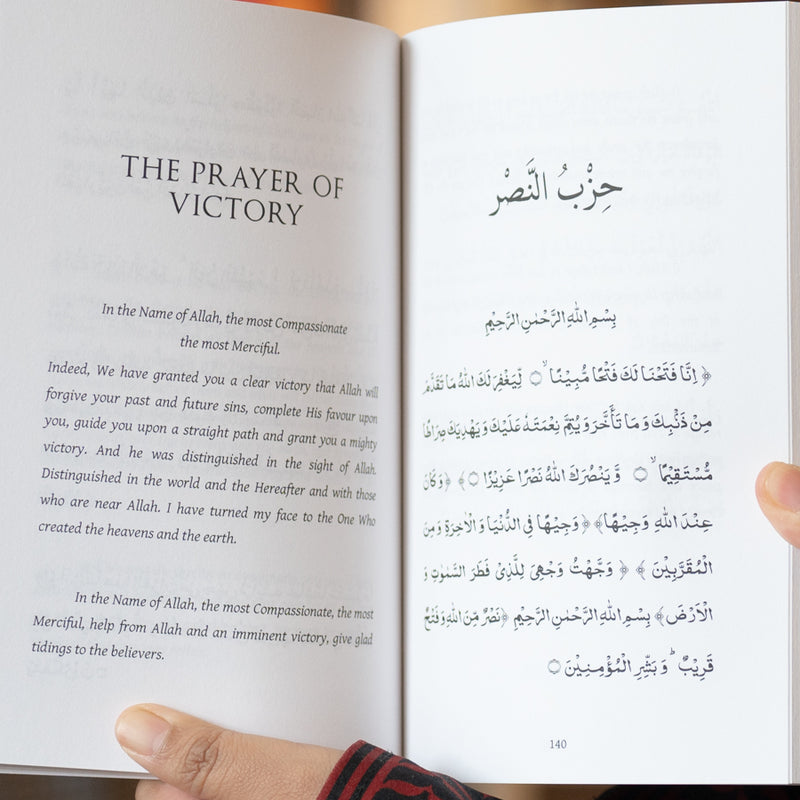 THE PRAYER OF
VICTORY
In the Name of Allah, the most Compassionate
the most Merciful.
Indeed, We have granted you a clear victory that Allah will
forgive your past and future sins, complete His favour upon
you, guide you upon a straight path and grant you a mighty
victory. And he was distinguished in the sight of Allah.
Distinguished in the world and the Hereafter and with those
who are near Allah. I have turned my face to the One Who
created the heavens and the earth.
In the Name of Allah, the most Compassionate, the most
Merciful, help from Allah and an imminent victory, give glad
tidings to the believers.
حِزْبُ النَّصْرِ
بِسْمِ اللهِ الرَّحْمٰنِ الرَّحِيْمِ
﴿ اِنَّا فَتَحْنَا لَكَ فَتْحًا مُّبِيْنًا ۙ۝ لِّيَغْفِرَ لَكَ اللهُ مَا تَقَدَّمَ
مِنْ ذَنْۢبِكَ وَ مَا تَأَخَّرَ وَ يُتِمَّ نِعْمَتَهٗ عَلَيْكَ وَ يَهْدِيَكَ صِرَاطًا
مُّسْتَقِيْمًا ۙ۝ وَّ يَنْصُرَكَ اللهُ نَصْرًا عَزِيْزًا ۝﴾ ﴿وَ كَانَ
عِنْدَ اللهِ وَجِيْهًا﴾ ﴿وَجِيْهًا فِى الدُّنْيَا وَ الْاٰخِرَةِ وَ مِنَ
الْمُقَرَّبِيْنَ ﴾ ﴿ وَجَّهْتُ وَجْهِىَ لِلَّذِىْ فَطَرَ السَّمٰوٰتِ وَ
الْاَرْضَ﴾ بِسْمِ اللهِ الرَّحْمٰنِ الرَّحِيْمِ ﴿نَصْرٌ مِّنَ اللهِ وَ فَتْحٌ
قَرِيْبٌ ؕ وَ بَشِّرِ الْمُؤْمِنِيْنَ ۝
140